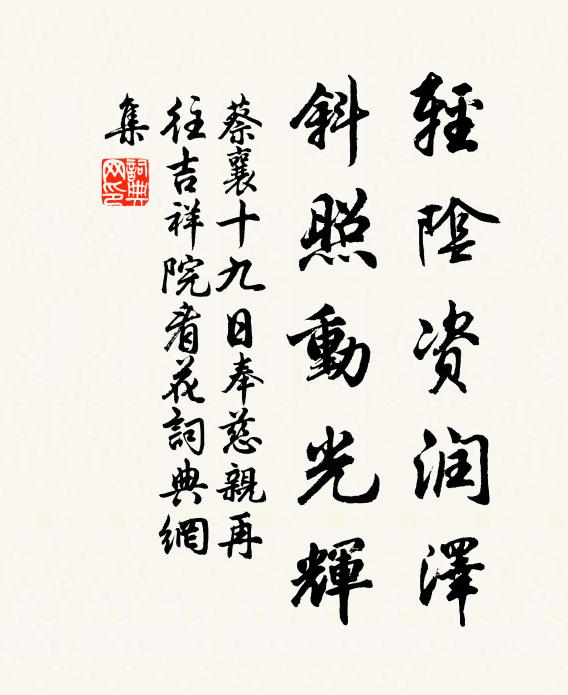 輕陰資润澤
斜照動光輝
蔡襄十九日奉慈親再
往吉祥院看花詞典網
集
詞典
网印